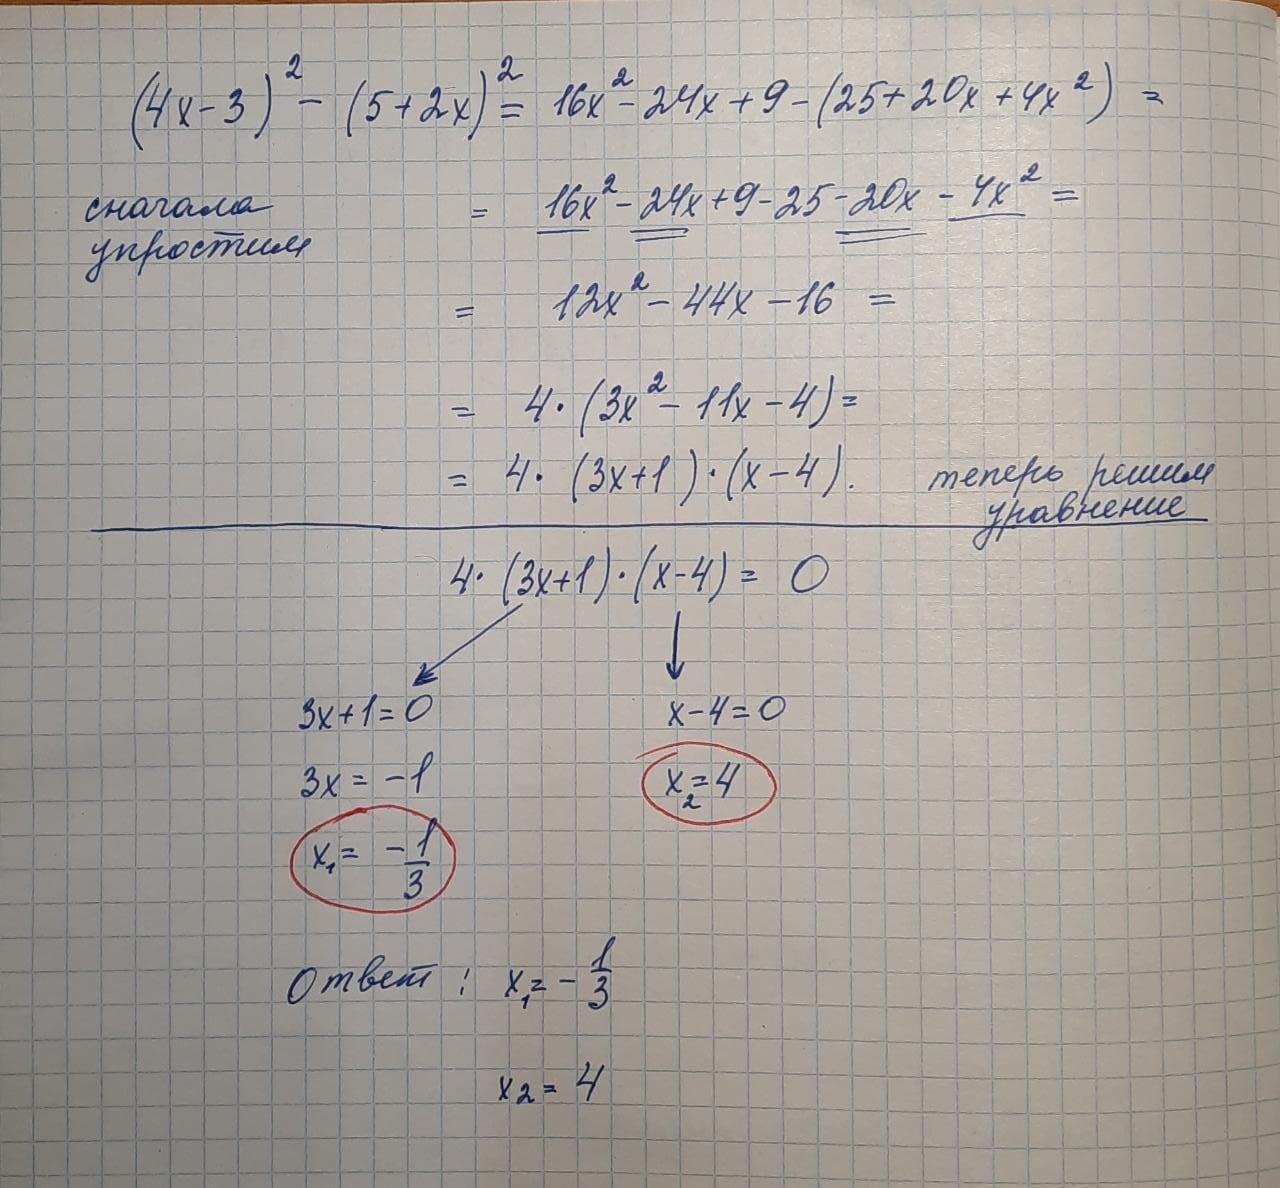 (4x-3)² - (5+2x)² = 16x² - 24x + 9 - (25+20x+4x²) =
сначала упростим
= 16x² - 24x + 9 - 25 - 20x - 4x² =
= 12x² - 44x - 16 =
= 4·(3x² - 11x - 4) =
= 4·(3x+1)·(x-4).
теперь решим уравнение
4·(3x+1)·(x-4) = 0
3x+1=0
x-4=0
3x = -1
x₂=4
x₁ = -1/3
Ответ: x₁ = -1/3
x₂ = 4